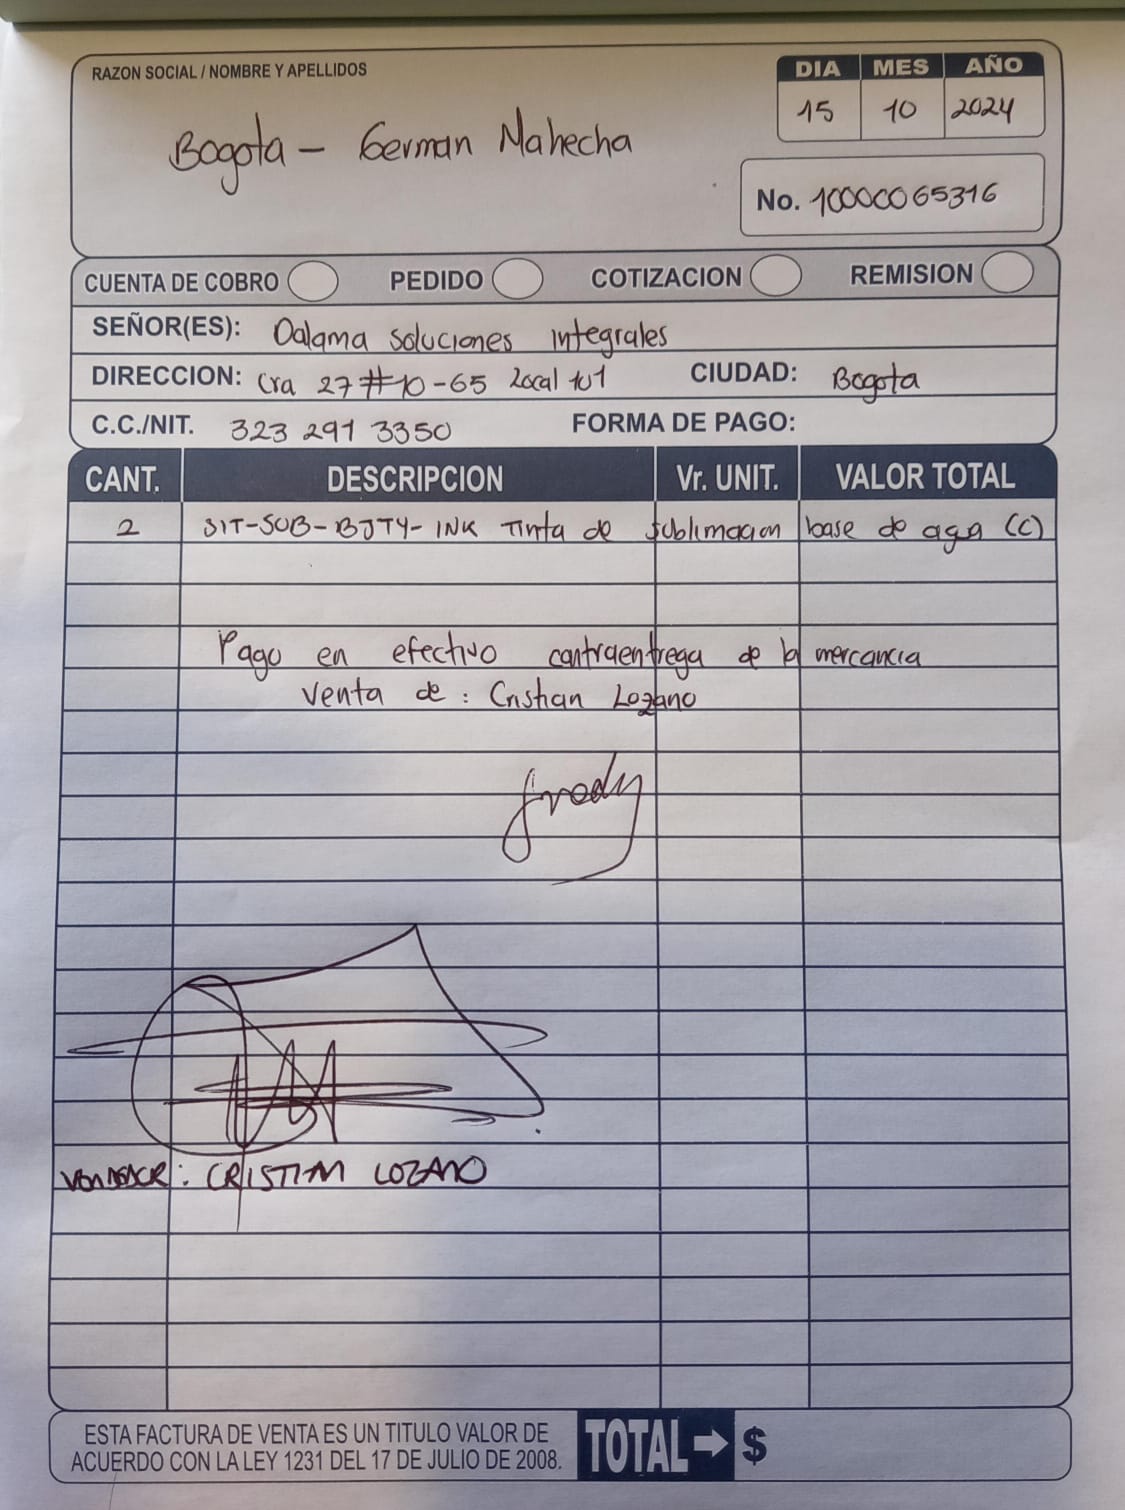 RAZON SOCIAL / NOMBRE Y APELLIDOS
DIA MES AÑO
15 10 2024
Bogota - German Mahecha
No. 10000065316
CUENTA DE COBRO PEDIDO COTIZACION REMISION
SEÑOR(ES): Dalqma soluciones integrales
DIRECCION: Cra 27 #10-65 Local 101 CIUDAD: Bogota
C.C./NIT. 323 291 3350 FORMA DE PAGO:
CANT. DESCRIPCION Vr. UNIT. VALOR TOTAL
2 SIT-SUB-BJTY-INK Tinta de sublimacion base de agua (C)
Pago en efectivo contraentrega de la mercancia
Venta de: Cristian Lozano
fredy
VENDEDOR: CRISTIAN LOZANO
ESTA FACTURA DE VENTA ES UN TITULO VALOR DE
ACUERDO CON LA LEY 1231 DEL 17 DE JULIO DE 2008.
TOTAL → $